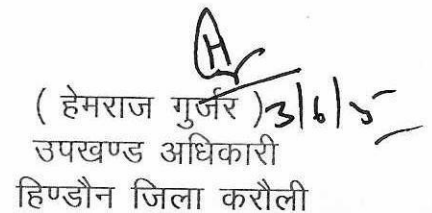 ( हेमराज गुर्जर ) 3/6/5
उपखण्ड अधिकारी
हिण्डौन जिला करौली